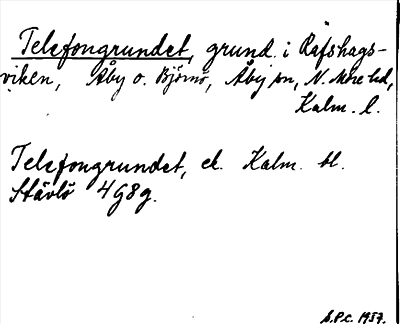 Telefongrundet, grund i Räfshags-
viken, Åby o. Björnö, Åby sn, N. Möre hd,
Kalm. l.
Telefongrundet, ek. Kalm. bl.
Stävlö 4G8g.
S.P.C. 1957.